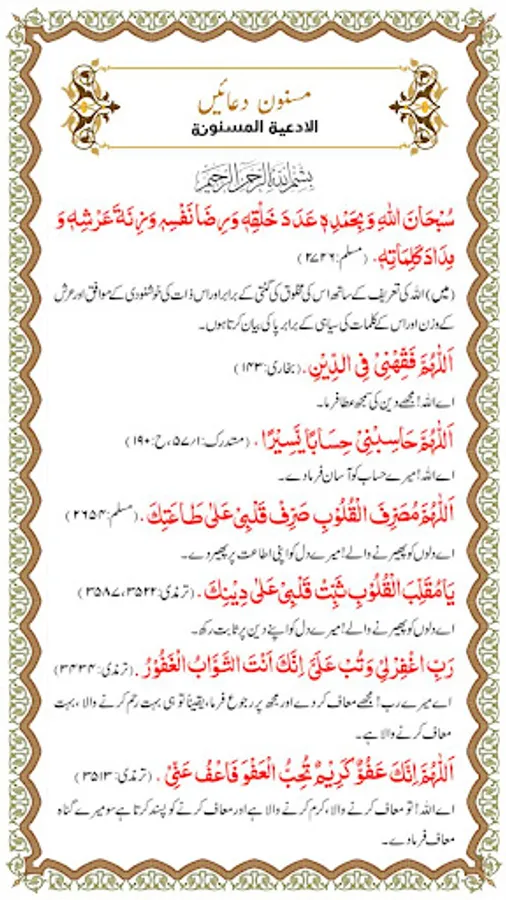 مسنون دعائیں
الادعية المسنونة
بِسْمِ اللهِ الرَّحْمٰنِ الرَّحِيْمِ
سُبْحَانَ اللهِ وَبِحَمْدِهٖ عَدَدَ خَلْقِهٖ وَرِضَا نَفْسِهٖ وَزِنَةَ عَرْشِهٖ وَ
مِدَادَ كَلِمَاتِهٖ. (مسلم: ۲۷۲۶)
(میں) اللہ کی تعریف کے ساتھ اس کی مخلوق کی گنتی کے برابر اور اس ذات کی خوشنودی کے موافق اور عرش
کے وزن اور اس کے کلمات کی سیاہی کے برابر پاکی بیان کرتا ہوں۔
اَللّٰهُمَّ فَقِّهْنِيْ فِي الدِّيْنِ. (بخاری: ۱۴۳)
اے اللہ! مجھے دین کی سمجھ عطا فرما۔
اَللّٰهُمَّ حَاسِبْنِيْ حِسَابًا يَّسِيْرًا. (مستدرک: ۵۷/۱، ح: ۱۹۰)
اے اللہ! میرے حساب کو آسان فرما دے۔
اَللّٰهُمَّ مُصَرِّفَ الْقُلُوْبِ صَرِّفْ قَلْبِيْ عَلٰى طَاعَتِكَ. (مسلم: ۲۶۵۴)
اے دلوں کو پھیرنے والے! میرے دل کو اپنی اطاعت پر پھیر دے۔
يَا مُقَلِّبَ الْقُلُوْبِ ثَبِّتْ قَلْبِيْ عَلٰى دِيْنِكَ. (ترمذی: ۳۵۲۲، ۳۵۸۷)
اے دلوں کو پھیرنے والے! میرے دل کو اپنے دین پر ثابت رکھ۔
رَبِّ اغْفِرْ لِيْ وَتُبْ عَلَيَّ اِنَّكَ اَنْتَ التَّوَّابُ الْغَفُوْرُ. (ترمذی: ۳۴۳۴)
اے میرے رب! مجھے معاف کر دے اور مجھ پر رجوع فرما، یقیناً تو ہی بہت رحم کرنے والا، بہت
معاف کرنے والا ہے۔
اَللّٰهُمَّ اِنَّكَ عَفُوٌّ كَرِيْمٌ تُحِبُّ الْعَفْوَ فَاعْفُ عَنِّيْ. (ترمذی: ۳۵۱۳)
اے اللہ! تو معاف کرنے والا، کرم کرنے والا ہے اور معاف کرنے کو پسند کرتا ہے سو میرے گناہ
معاف فرما دے۔